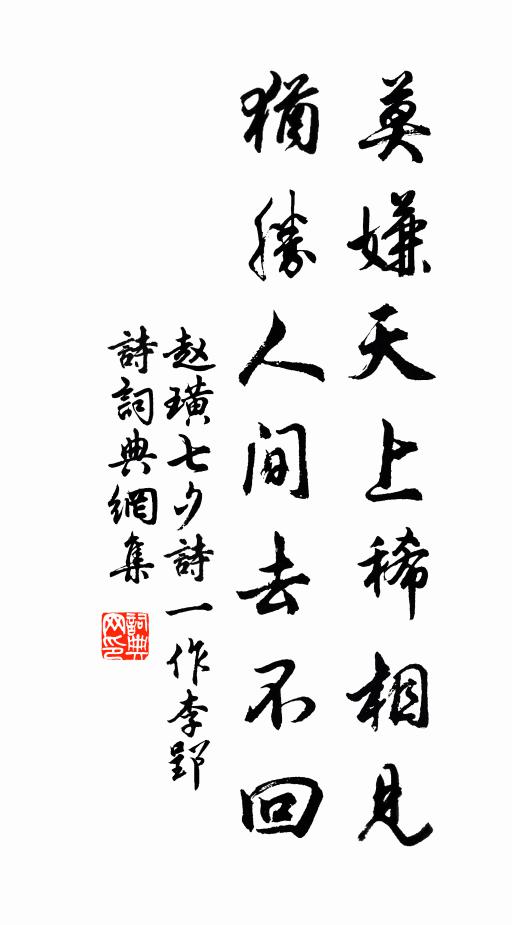 莫嫌天上稀相見
猶勝人間去不回
赵璜七夕詩一作李郢
詩詞典網集
詞典网印